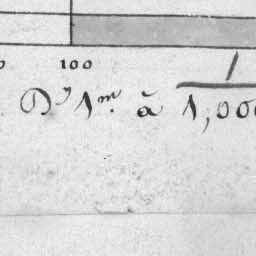 100
Dy 1m. à 1/1,000